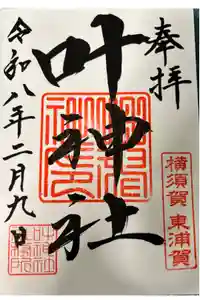 奉拝
横須賀 東浦賀
叶神社
令和八年二月九日